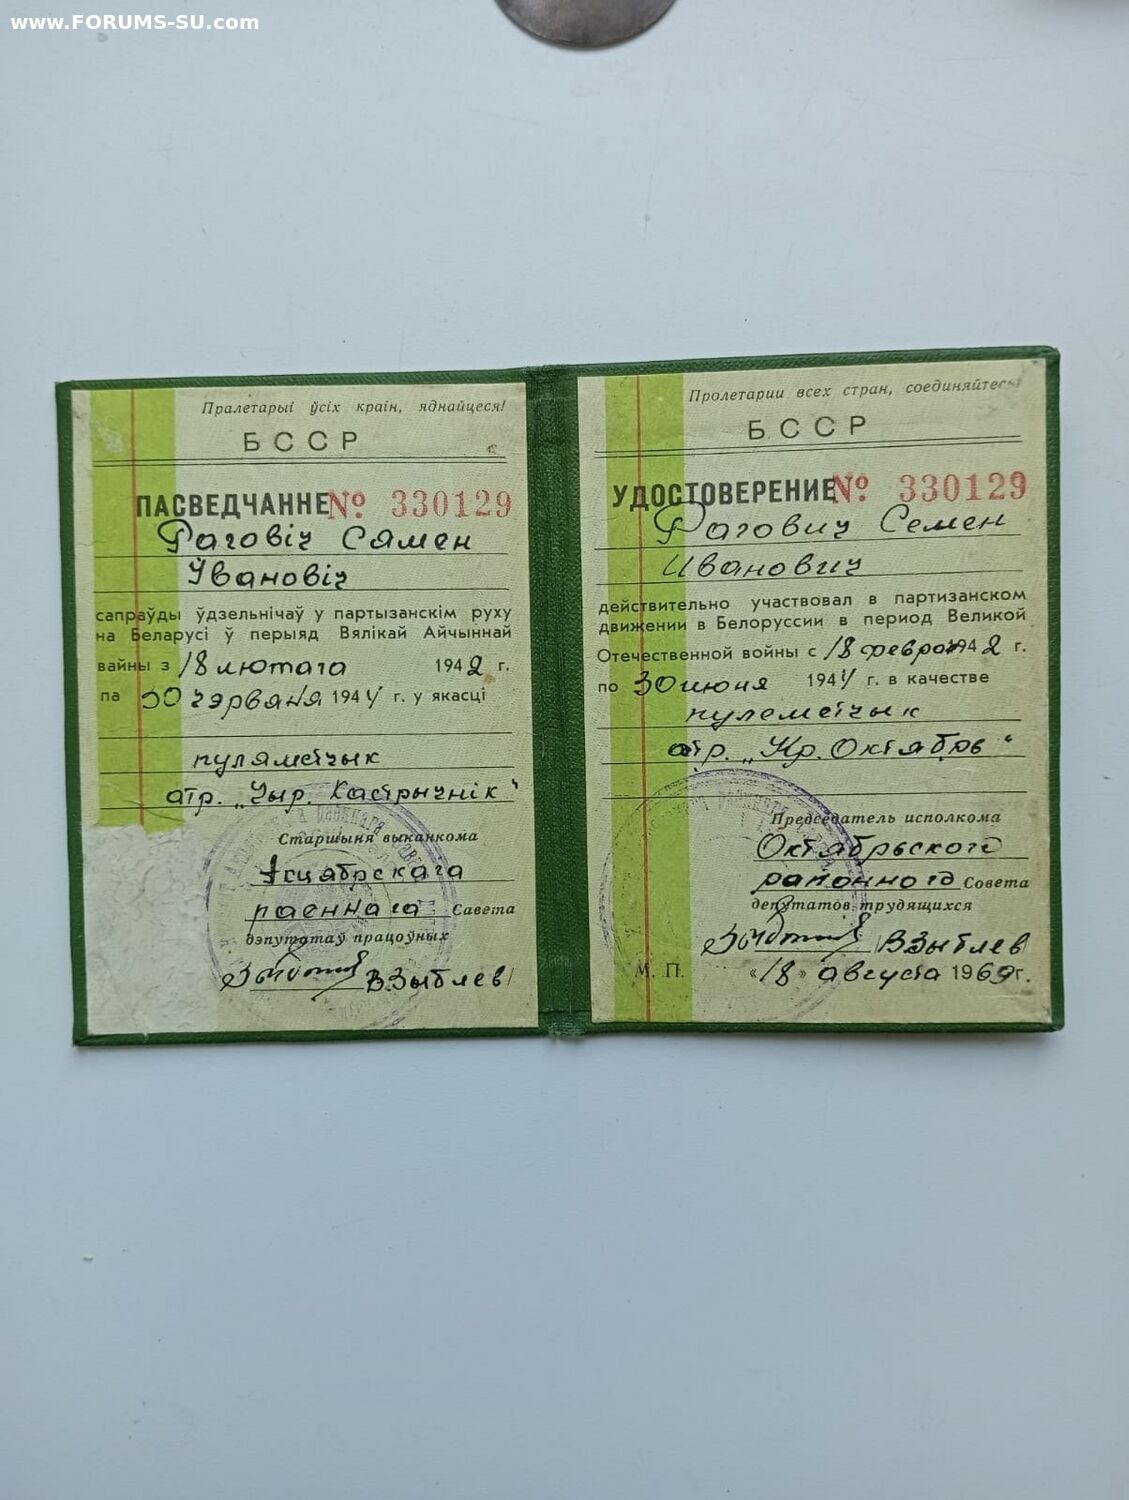 www.FORUMS-SU.com
Пралетарыі ўсіх краін, яднайцеся!
БССР
ПАСВЕДЧАННЕ № 330129
Раговіч Сямен
Івановіч
сапраўды ўдзельнічаў у партызанскім руху
на Беларусі ў перыяд Вялікай Айчыннай
вайны з 18 лютага 1942 г.
па 30 чэрвеня 1944 г. у якасці
пуляметчык
атр. „Чыр. Кастрычнік“
Старшыня выканкома
Акцябрскага
раённага Савета
дэпутатаў працоўных
В Зыблев
Пролетарии всех стран, соединяйтесь!
БССР
УДОСТОВЕРЕНИЕ № 330129
Рагович Семен
Иванович
действительно участвовал в партизанском
движении в Белоруссии в период Великой
Отечественной войны с 18 февра 1942 г.
по 30 июня 1944 г. в качестве
пулеметчык
отр. „Кр. Октябрь“
Председатель исполкома
Октябрьского
районного Совета
депутатов трудящихся
В Зыблев
М. П. «18» августа 1969 г.